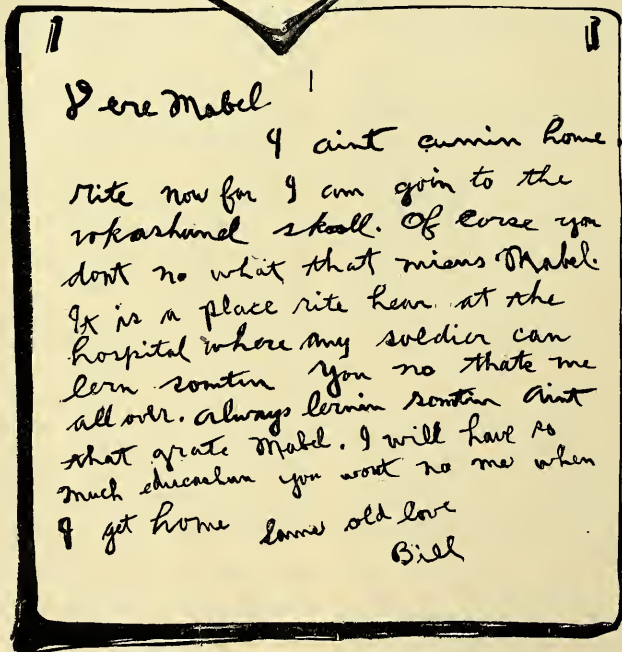 Dere Mabel
I aint cumin home
rite now for I am goin to the
vokashunel skool. Of corse you
dont no what that miens Mabel.
It is a place rite hear at the
hospital where any soldier can
lern somtin you no thats me
all over. always lernin somtin aint
that grate Mabel. I will have so
much educashun you wont no me when
I get home Same old love
Bill